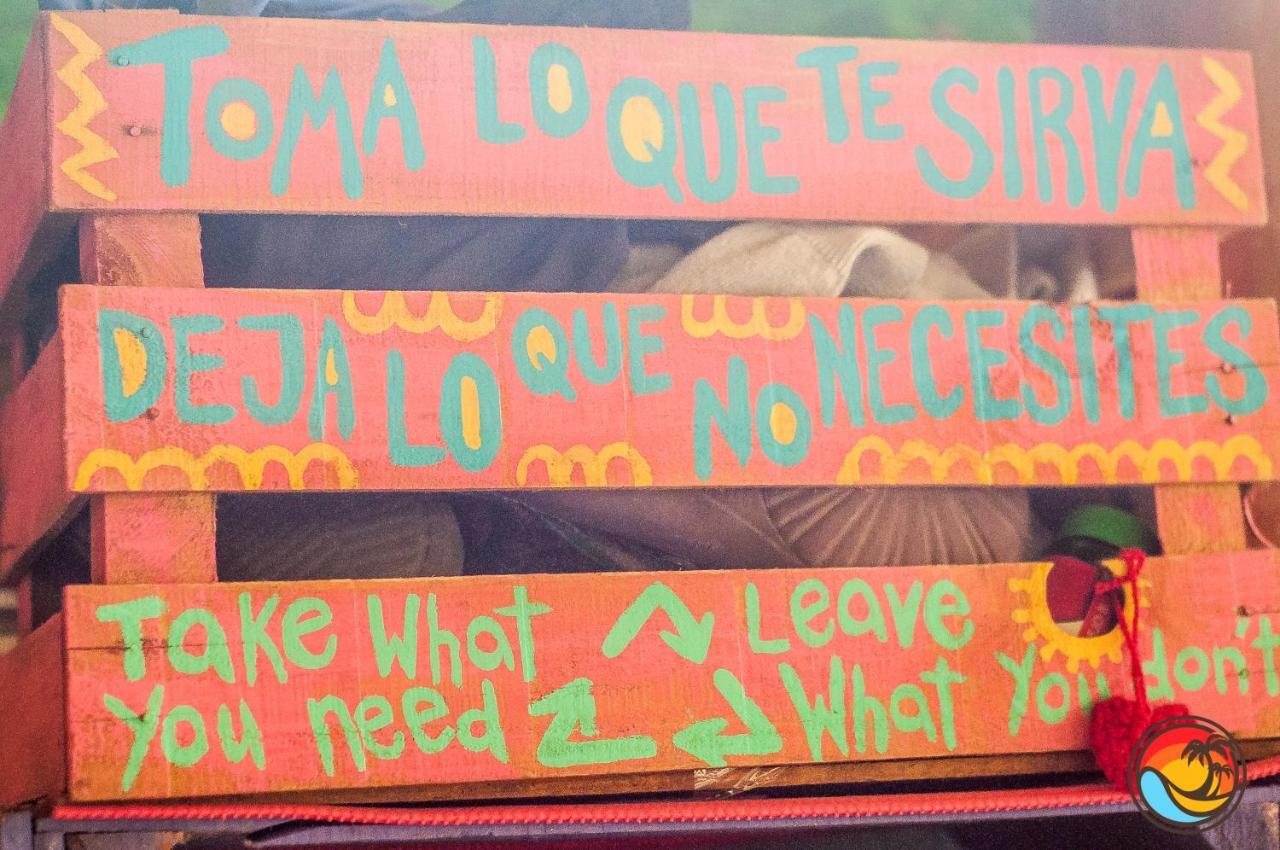 TOMA LO QUE TE SIRVA
DEJA LO QUE NO NECESITES
Take What Leave
You need What You don't